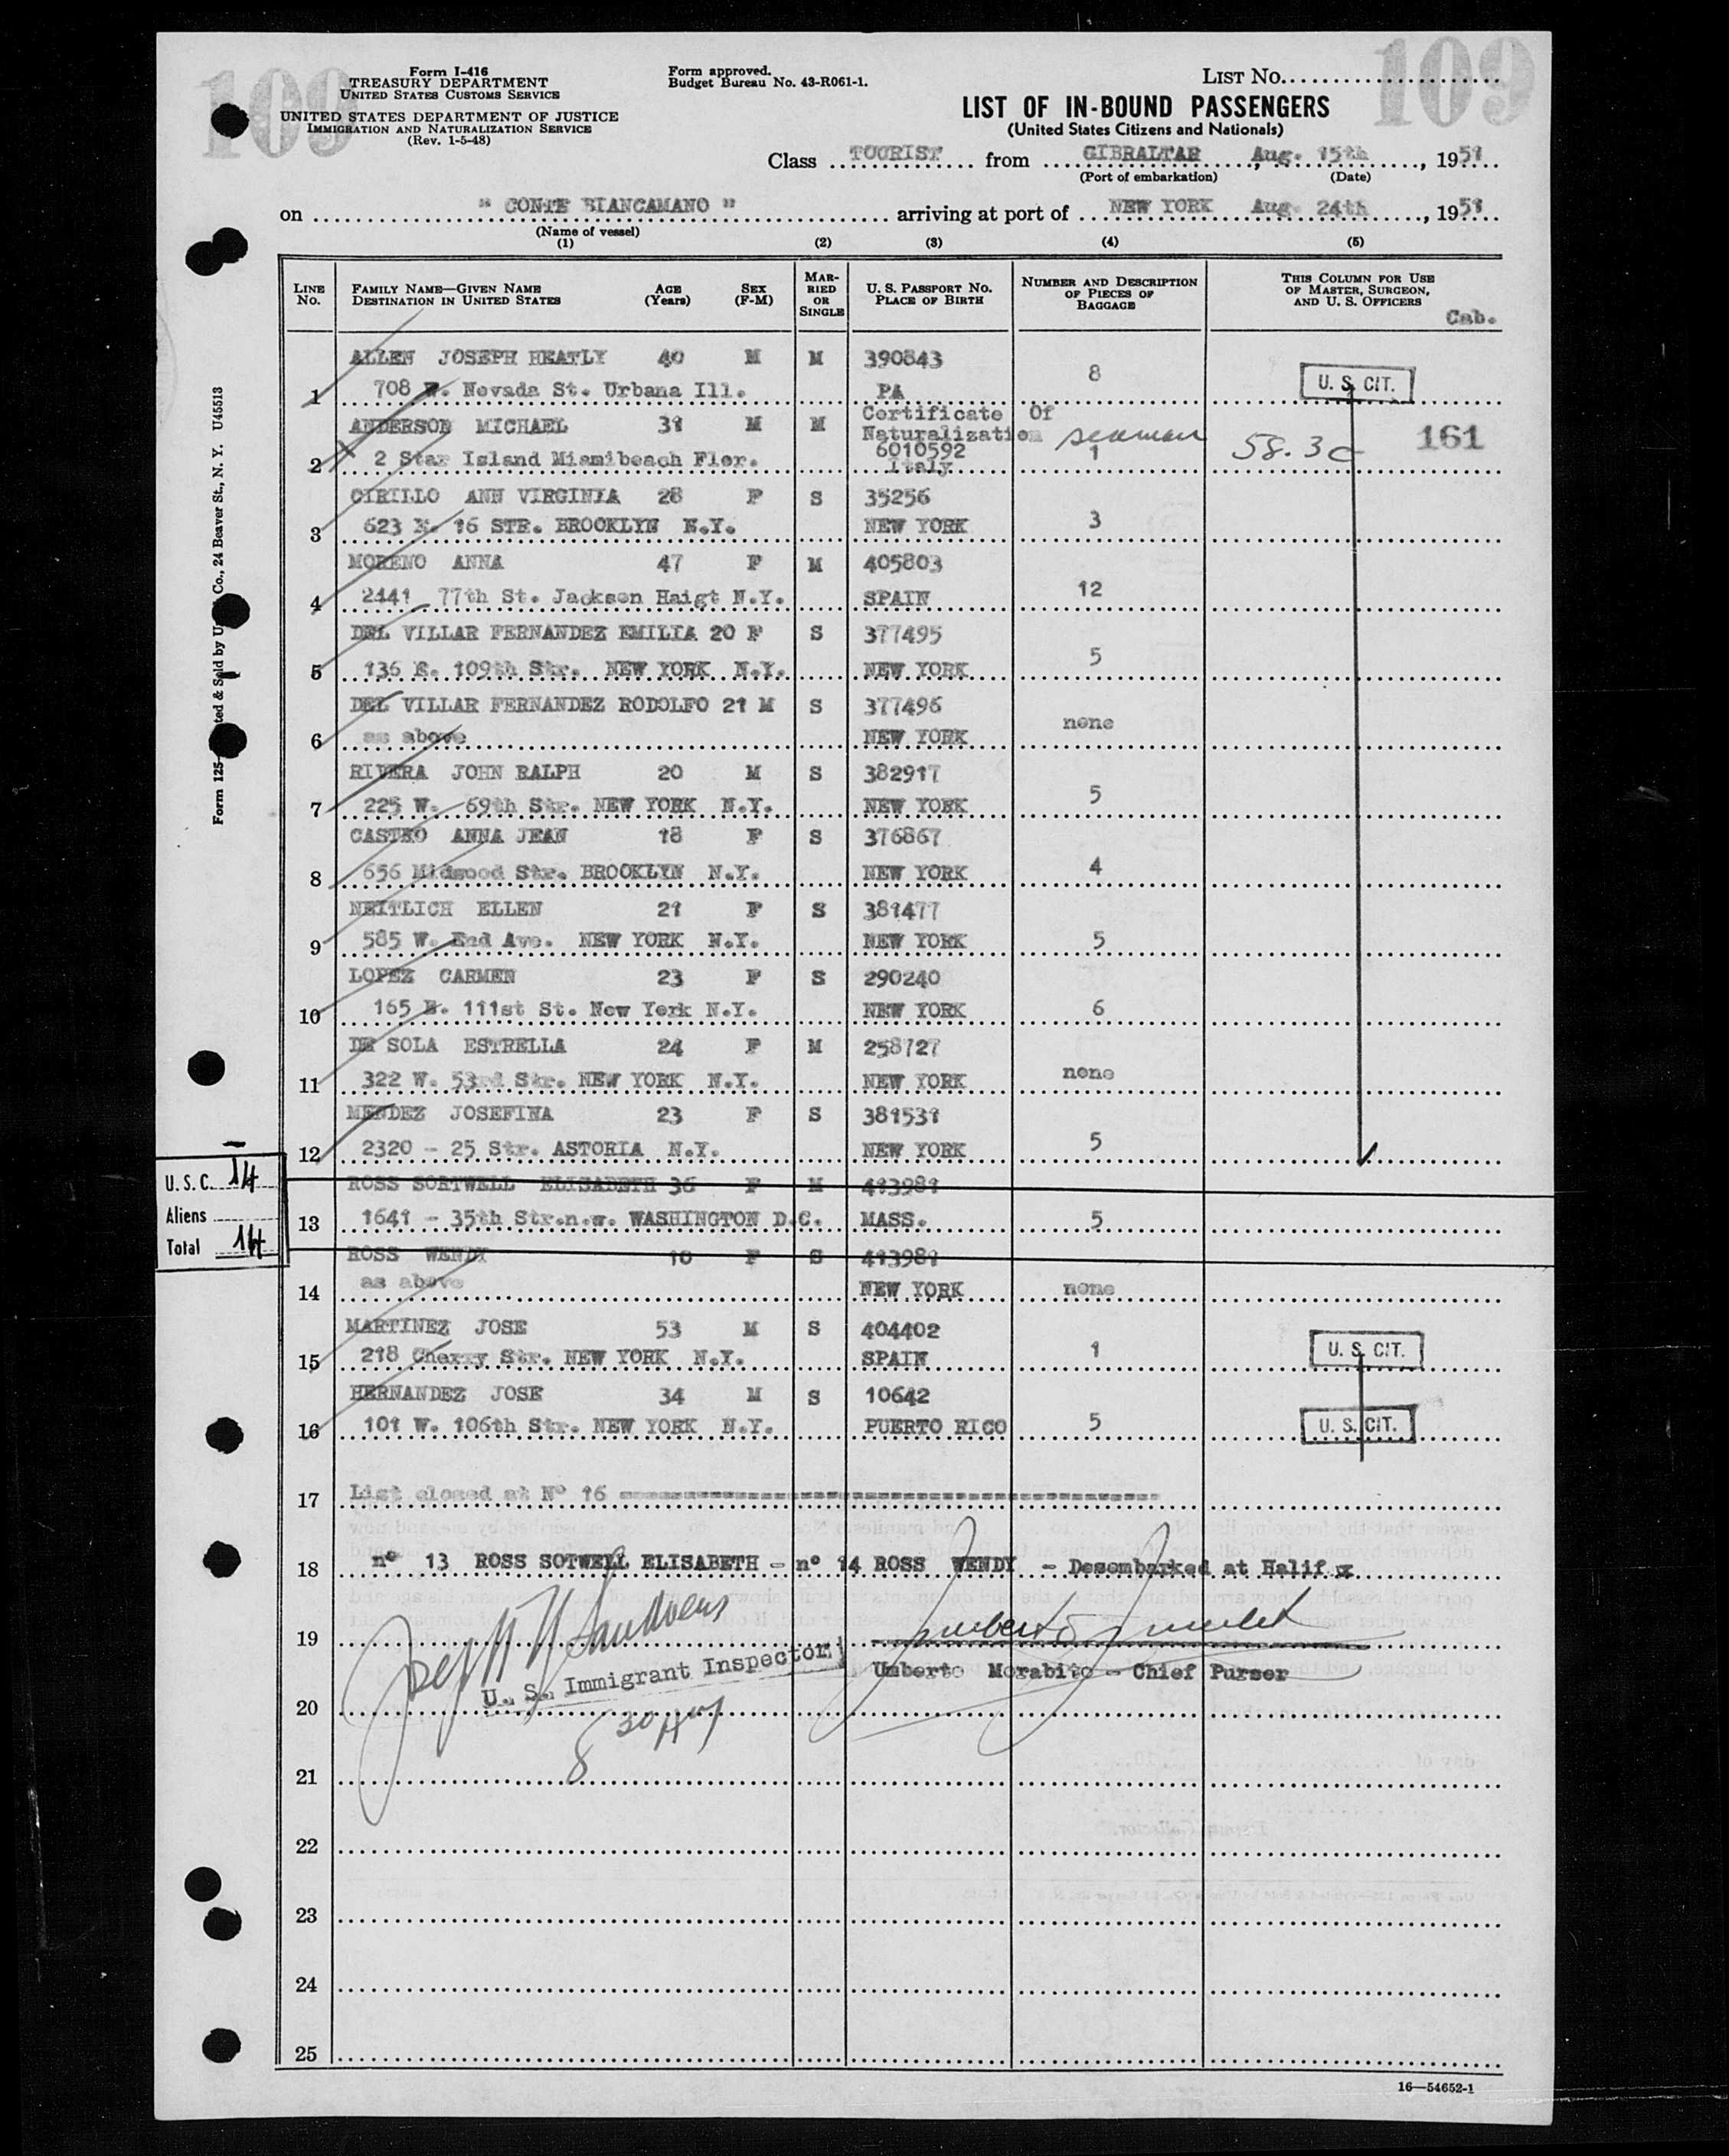 109
109
Form I-416
TREASURY DEPARTMENT
UNITED STATES CUSTOMS SERVICE
UNITED STATES DEPARTMENT OF JUSTICE
IMMIGRATION AND NATURALIZATION SERVICE
(Rev. 1-5-48)
Form approved.
Budget Bureau No. 43-R061-1.
LIST NO.
LIST OF IN-BOUND PASSENGERS
(United States Citizens and Nationals)
Class TOURIST from GIBRALTAR, Aug. 15th, 1951
(Port of embarkation) (Date)
on " CONTE BIANCAMANO " arriving at port of NEW YORK Aug. 24th, 1951
(Name of vessel)
(1) (2) (3) (4) (5)
LINE NO. FAMILY NAME—GIVEN NAME DESTINATION IN UNITED STATES AGE (Years) SEX (F-M) MARRIED OR SINGLE U. S. PASSPORT NO. PLACE OF BIRTH NUMBER AND DESCRIPTION OF PIECES OF BAGGAGE THIS COLUMN FOR USE OF MASTER, SURGEON, AND U. S. OFFICERS
Cab.
ALLEN JOSEPH HEATLY 40 M M 390843
1 708 W. Nevada St. Urbana Ill. PA 8 U. S. CIT.
ANDERSON MICHAEL 31 M M Certificate Of Naturalization 6010592 seaman
2 2 Star Island Miamibeach Flor. Italy 1 58.3c 161
CIRILLO ANN VIRGINIA 28 F S 35256
3 623 E. 16 STR. BROOKLYN N.Y. NEW YORK 3
MORENO ANNA 47 F M 405803
4 2441 77th St. Jackson Haigt N.Y. SPAIN 12
DEL VILLAR FERNANDEZ EMILIA 20 F S 377495
5 136 E. 109th Str. NEW YORK N.Y. NEW YORK 5
DEL VILLAR FERNANDEZ RODOLFO 21 M S 377496
6 as above NEW YORK none
RIVERA JOHN RALPH 20 M S 382917
7 225 W. 69th Str. NEW YORK N.Y. NEW YORK 5
CASTRO ANNA JEAN 18 F S 376867
8 656 Midwood Str. BROOKLYN N.Y. NEW YORK 4
NEITLICH ELLEN 21 F S 381477
9 585 W. End Ave. NEW YORK N.Y. NEW YORK 5
LOPEZ CARMEN 23 F S 290240
10 165 E. 111st St. New York N.Y. NEW YORK 6
DE SOLA ESTRELLA 24 F M 258727
11 322 W. 53rd Str. NEW YORK N.Y. NEW YORK none
MENDEZ JOSEFINA 23 F S 381531
12 2320 - 25 Str. ASTORIA N.Y. NEW YORK 5
ROSS SORTWELL ELISABETH 36 F M 413981
13 1641 - 35th Str.n.w. WASHINGTON D.C. MASS. 5
ROSS WENDY 10 F S 413981
14 as above NEW YORK none
MARTINEZ JOSE 53 M S 404402
15 218 Cherry Str. NEW YORK N.Y. SPAIN 1 U. S. CIT.
HERNANDEZ JOSE 34 M S 10642
16 101 W. 106th Str. NEW YORK N.Y. PUERTO RICO 5 U. S. CIT.
17 List closed at Nº 16
18 nº 13 ROSS SOTWELL ELISABETH - nº 14 ROSS WENDY - Desembarked at Halif x
19
U. S. Immigrant Inspector
Umberto Morabito - Chief Purser
20
8 30 A
21
22
23
24
25
16—54652-1
U. S. C. 14
Aliens
Total 14
Co., 24 Beaver St., N. Y. U45513